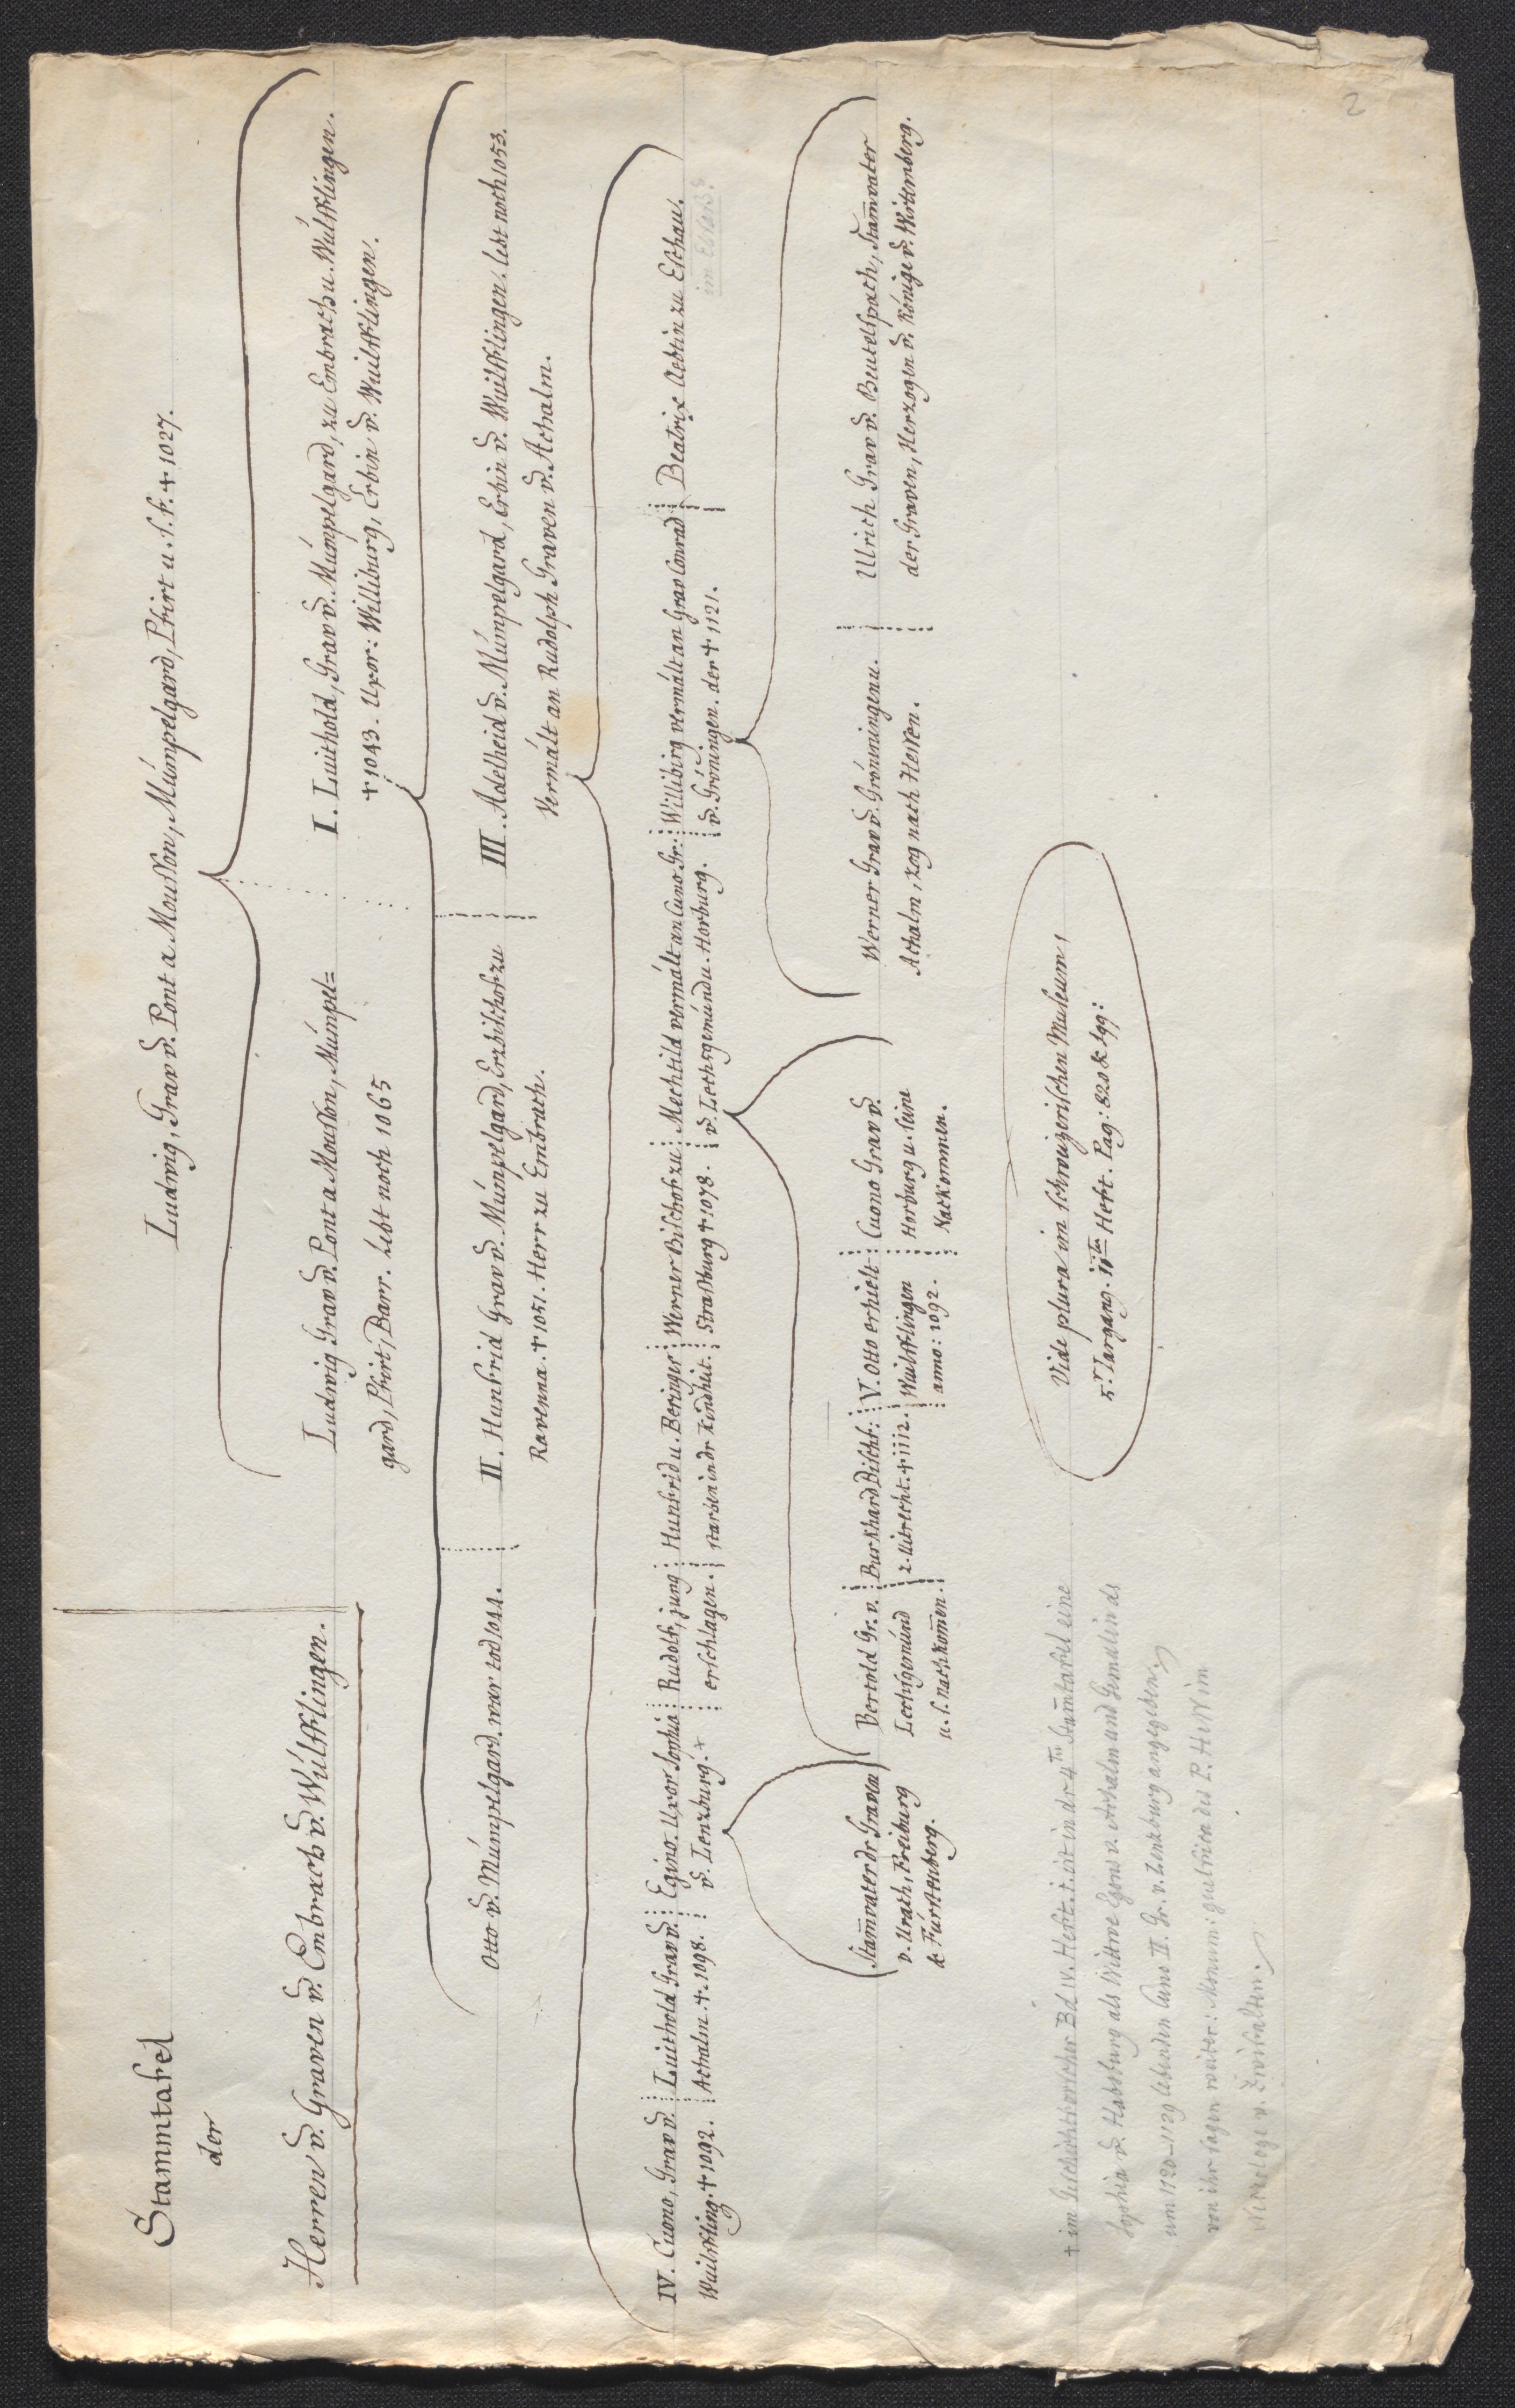 Stammtafel
der
Herren v. Graven v. Embrach v. Wülfflingen.
Ludwig, Grav v. Pont a Mousson, Mümpelgard, Pfirt u. s. f. † 1027.
Ludwig Grav v. Pont a Mousson, Mümpel=
gard, Pfirt, Barr. Lebt noch 1065
I. Luithold, Grav v. Mümpelgard, zu Embrach u. Wülfflingen.
† 1043. Uxor: Williburg, Erbin v. Wuilfflingen.
Otto v. Mümpelgard. war tod 1044.
II. Hunfrid Grav v. Mümpelgard, Erzbischof zu
Ravenna. † 1051. Herr zu Embrach.
III. Adelheid v. Mümpelgard, Erbin v. Wuilfflingen. lebt noch 1053.
Vermält an Rudolph Graven v. Achalm.
IV. Cuono, Grav v.
Wuilffling. † 1092.
Luithold Grav v.
Achalm. † 1098.
Egino. Uxor Sophia
v. Lenzburg. +
Rudolf, jung
erschlagen.
Hunfrid u. Beringer
starben in dr Kindheit.
Werner Bischof zu
Straßburg † 1078.
Mechtild vermält an Cuno Gr:
v. Lechsgemünd u. Horburg.
Williburg vermält an Grav Conrad
v. Gröningen. der † 1121.
Beatrix Aebtin zu Eschau.
im Elsaß?
Stam̄vater dr Graven
v. Urach, Freiburg
& Fürstenberg.
Bertold Gr. v.
Lechsgemünd
u. s. nachkom̄en.
Burkhard Bischf:
z. Utrecht. † 1112.
V. Otto erhielt
Wuilfflingen
anno: 1092.
Cuono Grav v.
Horburg u. seine
Nachkommen.
Werner Grav v. Grönningen u.
Achalm, zog nach Hessen.
Ulrich Grav v. Beutelspach, Stam̄vater
der Graven, Herzogen v. Könige v. Wirtemberg.
Vide plura im schweizerischen Museum,
5r Jargang. 11tn Heft. Pag: 820 & sgg:
† im Geschichtforscher Bd IV. Heft. 1. ist in dr 4tn Stam̄tafel eine
Sophia v. Habsburg als Wittwe Egons v. Achalm und Gemalin des
um 1120-1129 lebenden Cuno II. Gr. v. Lenzburg angegeben,
von ihr sagen weiter: Monum: guelfica des P. Heß im
Necrologe v. Zwifalten.
2